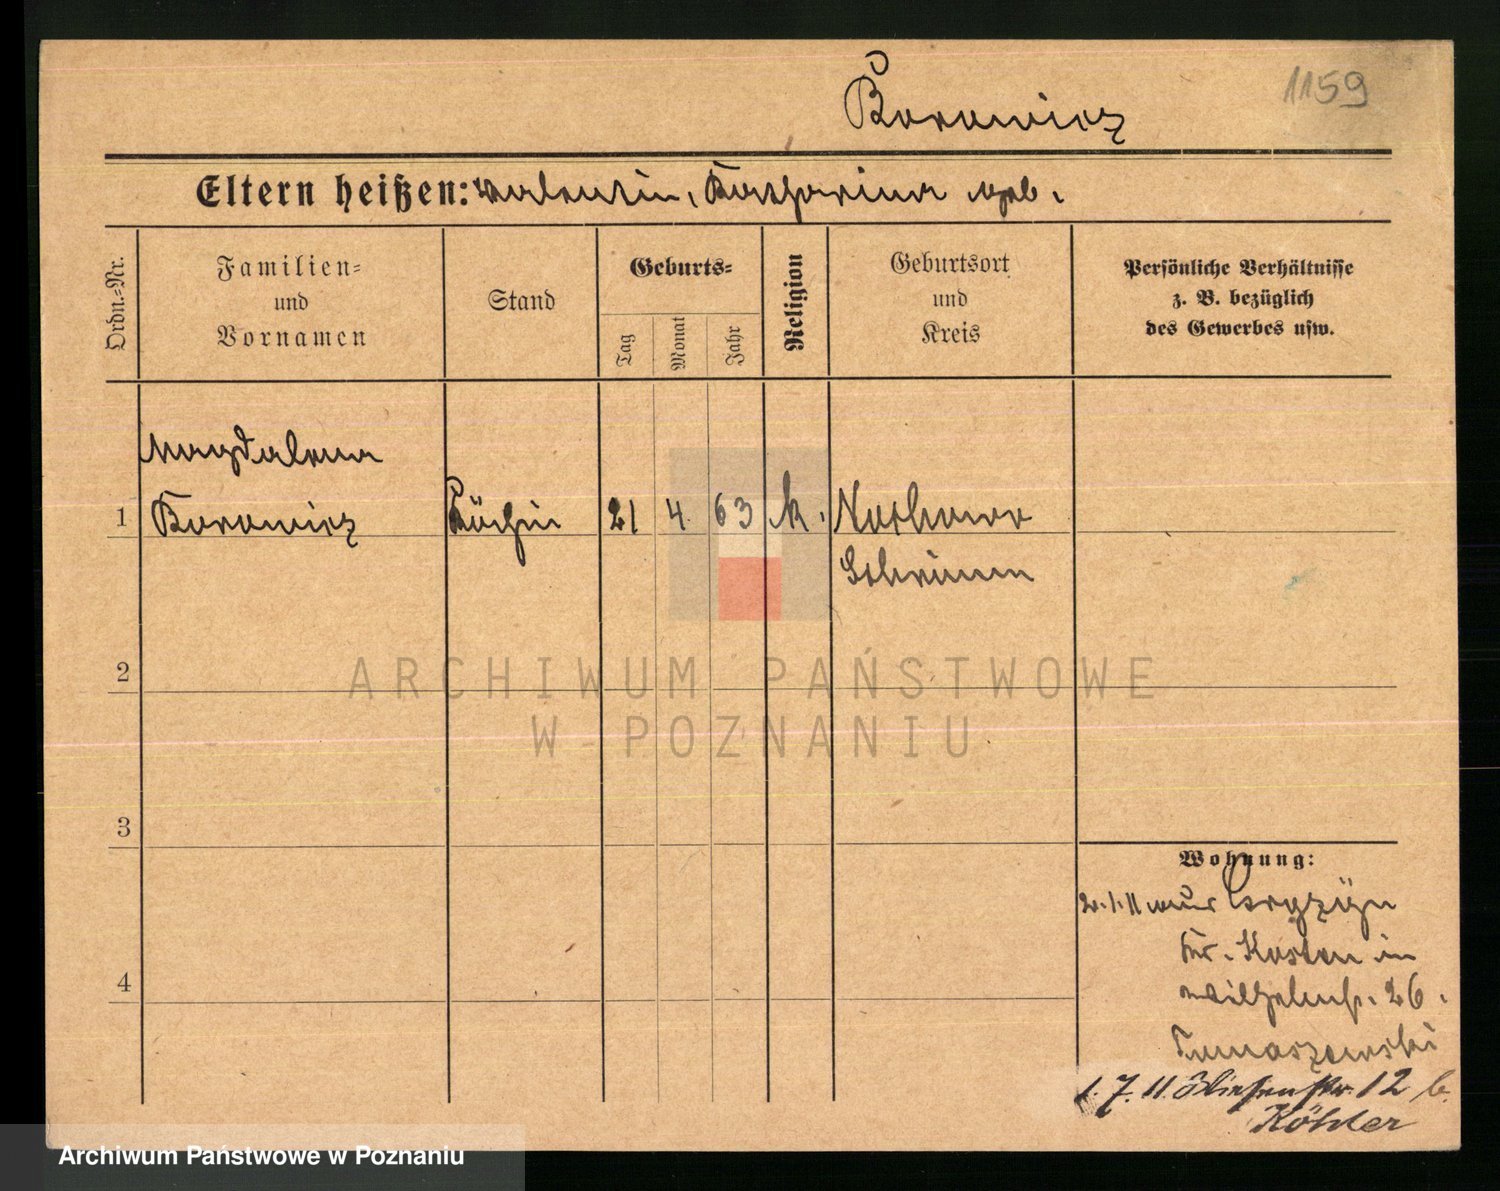 1159
Borowicz
Eltern heißen: Valentin, Katharina geb.
Ordn.-Nr.
Familien-
und
Vornamen
Stand
Geburts-
Tag
Monat
Jahr
Religion
Geburtsort
und
Kreis
Persönliche Verhältnisse
z. B. bezüglich
des Gewerbes usw.
Magdalena
1 Borowicz Köchin 21 4. 63 k. Nochowo
Schrimm
2
ARCHIWUM PAŃSTWOWE
W POZNANIU
3
Wohnung:
4
Kr. Kosten in
Wilhelmstr. 26.
Tomaszewski
1.7.11 12
Köhler
Archiwum Państwowe w Poznaniu